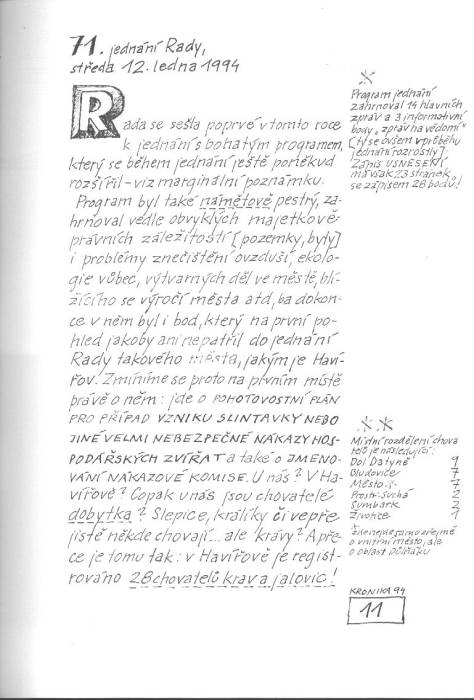 71. jednání Rady,
středa 12. ledna 1994
Rada se sešla poprvé v tomto roce
k jednání s bohatým programem,
který se během jednání ještě poněkud
rozšířil - viz marginální poznámku.
Program byl také námětově pestrý, za-
hrnoval vedle obvyklých majetkově
právních záležitostí [pozemky, byty]
i problémy znečištění ovzduší, ekolo-
gie vůbec, výtvarných děl ve městě, blí-
žícího se výročí města atd, ba dokon-
ce v něm byl i bod, který na první po-
hled jakoby ani nepatřil do jednání
Rady takového města, jakým je Haví-
řov. Zmíníme se proto na prvním místě
právě o něm: jde o POHOTOVOSTNÍ PLÁN
PRO PŘÍPAD VZNIKU SLINTAVKY NEBO
JINÉ VELMI NEBEZPEČNÉ NÁKAZY HOS-
PODÁŘSKÝCH ZVÍŘAT a také o JMENO-
VÁNÍ NÁKAZOVÉ KOMISE. U nás? V Ha-
vířově? Copak u nás jsou chovatelé
dobytka? Slepice, králíky či vepře
jistě někde chovají... ale krávy? A pře-
ce je tomu tak: v Havířově je regist-
rováno 28 chovatelů krav a jalovic!
*
Program jednání
zahrnoval 14 hlavních
zpráv a 3 informativní
body, "zpráv na vědomí"
[ty se ovšem v průběhu
jednání rozrostly]
Zápis USNESENÍ
má však 23 stránek
se zápisem 28 bodů!
* *
Místní rozdělení chova
telů je následující:
Dol. Datyně 9
Bludovice 7
Město 7
Prostř. Suchá 2
Šumbark 2
Životice 1
Zde nejde samozřejmě
o vnitřní město, ale
o oblast
KRONIKA 94
11